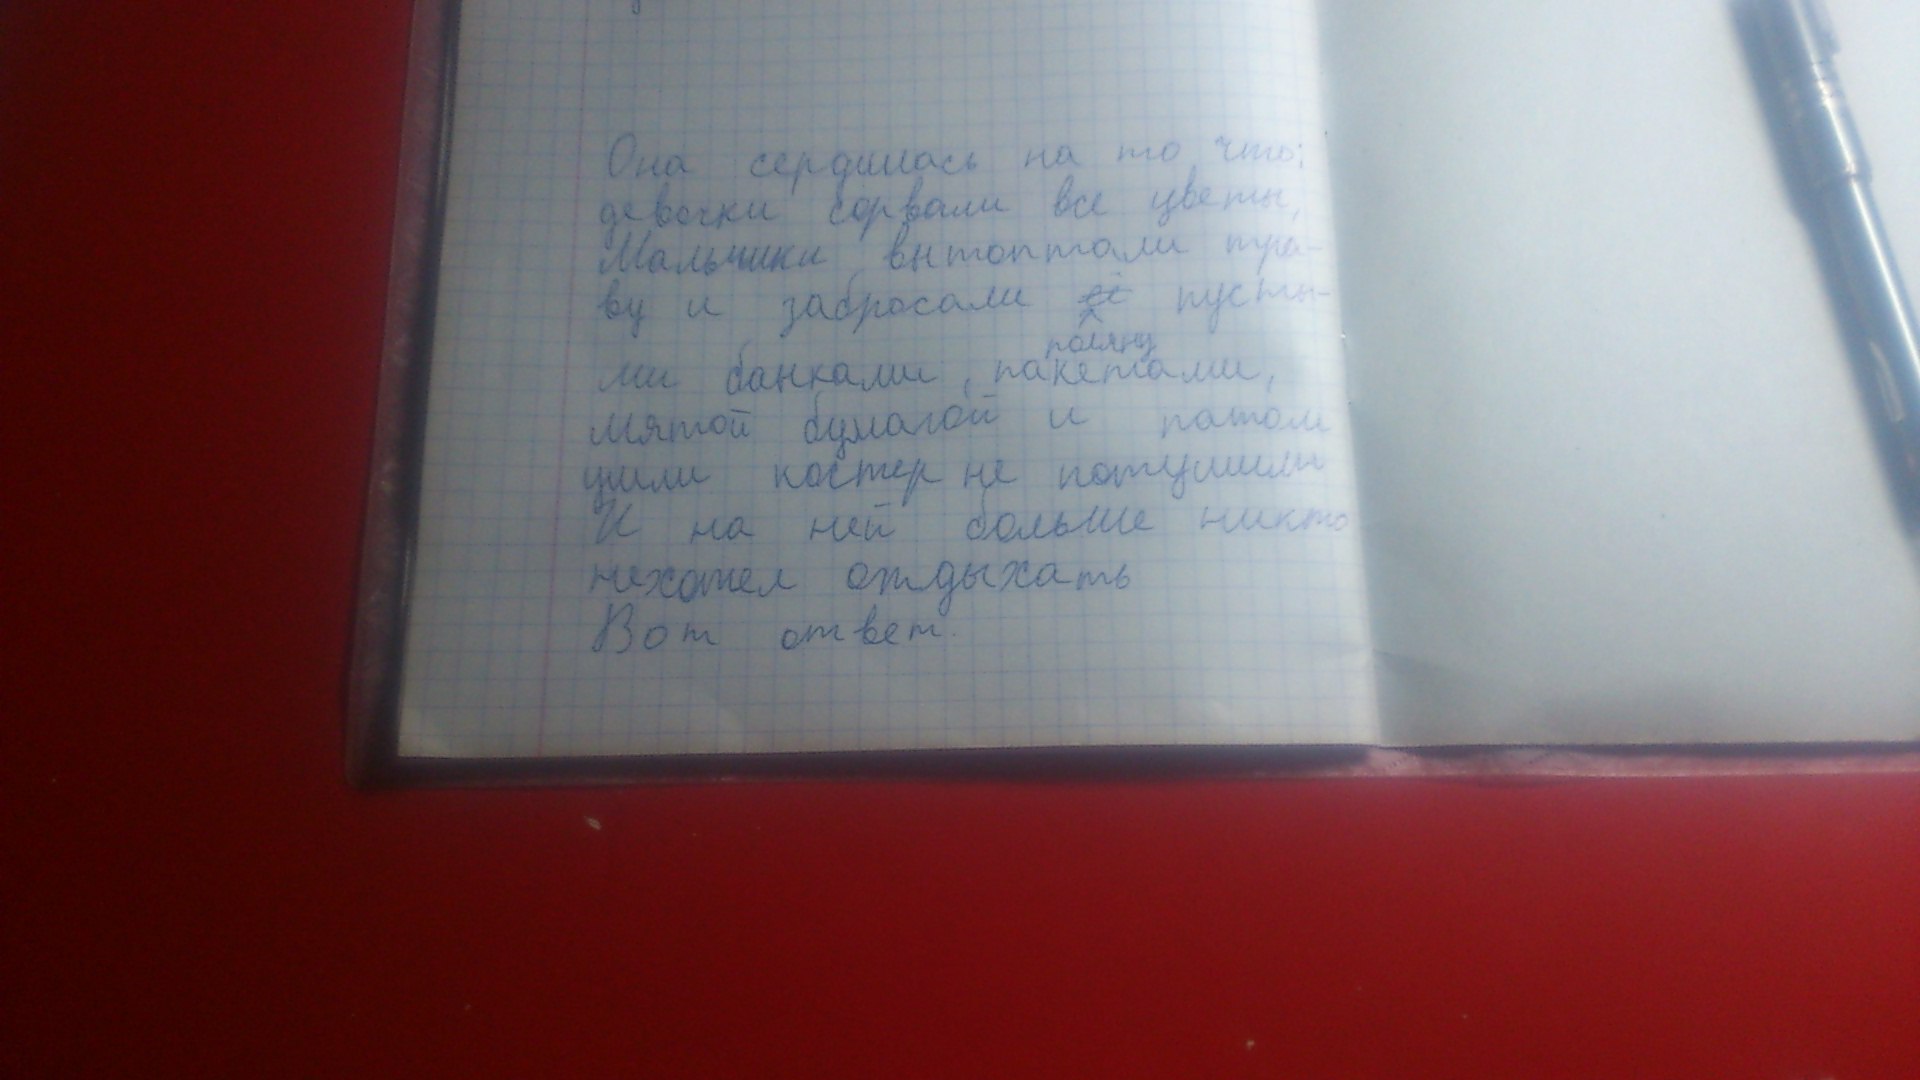 Она сердилась на то, что:
девочки сорвали все цветы,
Мальчики вытоптали тра-
ву и забросали её пусты-
поляну
ми банками, пакетами,
мятой бумагой и патом
ушли костер не потушили
И на ней больше никто
нехотел отдыхать
Вот ответ.